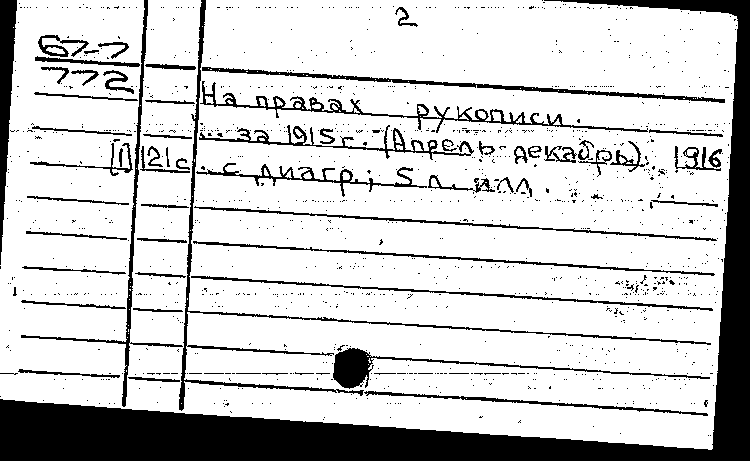 2
67-7
772
На правах рукописи.
... за 1915 г. (Апрель-декабрь). 1916
[1] 121 с. с диагр.; 5 л. илл.